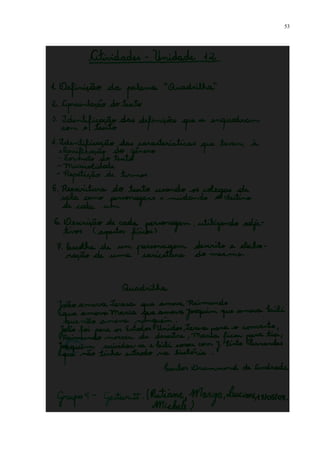 53
Atividades - Unidade 12
1. Definição da palavra "Quadrilha"
2. Apresentação do texto
3. Identificação das definições que se enquadram
com o texto
4. Identificação das características que levam à
classificação do gênero
- Formato do texto
- Musicalidade
- Repetição de termos
5. Reescritura do texto usando os colegas de
sala como personagens e mudando o destino
de cada um
6. Descrição de cada personagem utilizando adje-
tivos (aspectos físicos)
7. Escolha de um personagem descrito e elabo-
ração de uma caricatura do mesmo.
Quadrilha
João amava Teresa que amava Raimundo
que amava Maria que amava Joaquim que amava Lili
que não amava ninguém.
João foi para os Estados Unidos, Teresa para o convento,
Raimundo morreu de desastre, Maria ficou para tia,
Joaquim suicidou-se e Lili casou com J. Pinto Fernandes
que não tinha entrado na história.
Carlos Drummond de Andrade
Grupo 4 - Gestar II (Rutiane, Marga, Luciane,
Micheli)